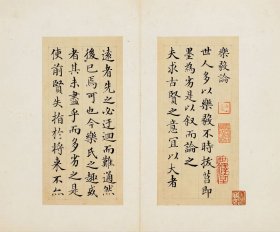 樂毅論
世人多以樂毅不時拔莒即
墨為劣是以叙而論之
夫求古賢之意宜以大者
遠者先之必迂迴而難通然
後已焉可也今樂氏之趣或
者其未盡乎而多劣之是
使前賢失指於將來不亦